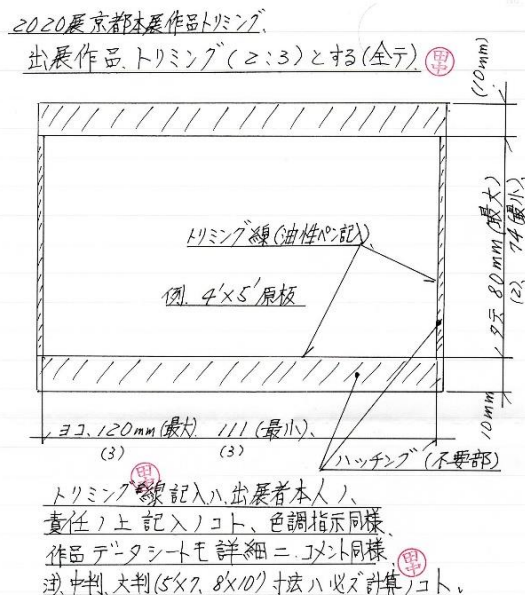 2020展京都本展作品トリミング、
出展作品、トリミング(2:3)とする(全テ)
(10mm)
トリミング線(油性ペン記入)、
例、4'×5'原板
タテ 80mm(最大) 74(最小)、
(2)
10mm
ヨコ、120mm(最大)、111(最小)、
(3) (3)
ハッチング(不要部)
トリミング線記入ハ、出展者本人ノ、
責任ノ上記入ノコト、色調指示同様、
作品データシートモ詳細ニ、コメント同様、
注)、中判、大判(5'×7'、8'×10')寸法ハ必ズ計算ノコト、